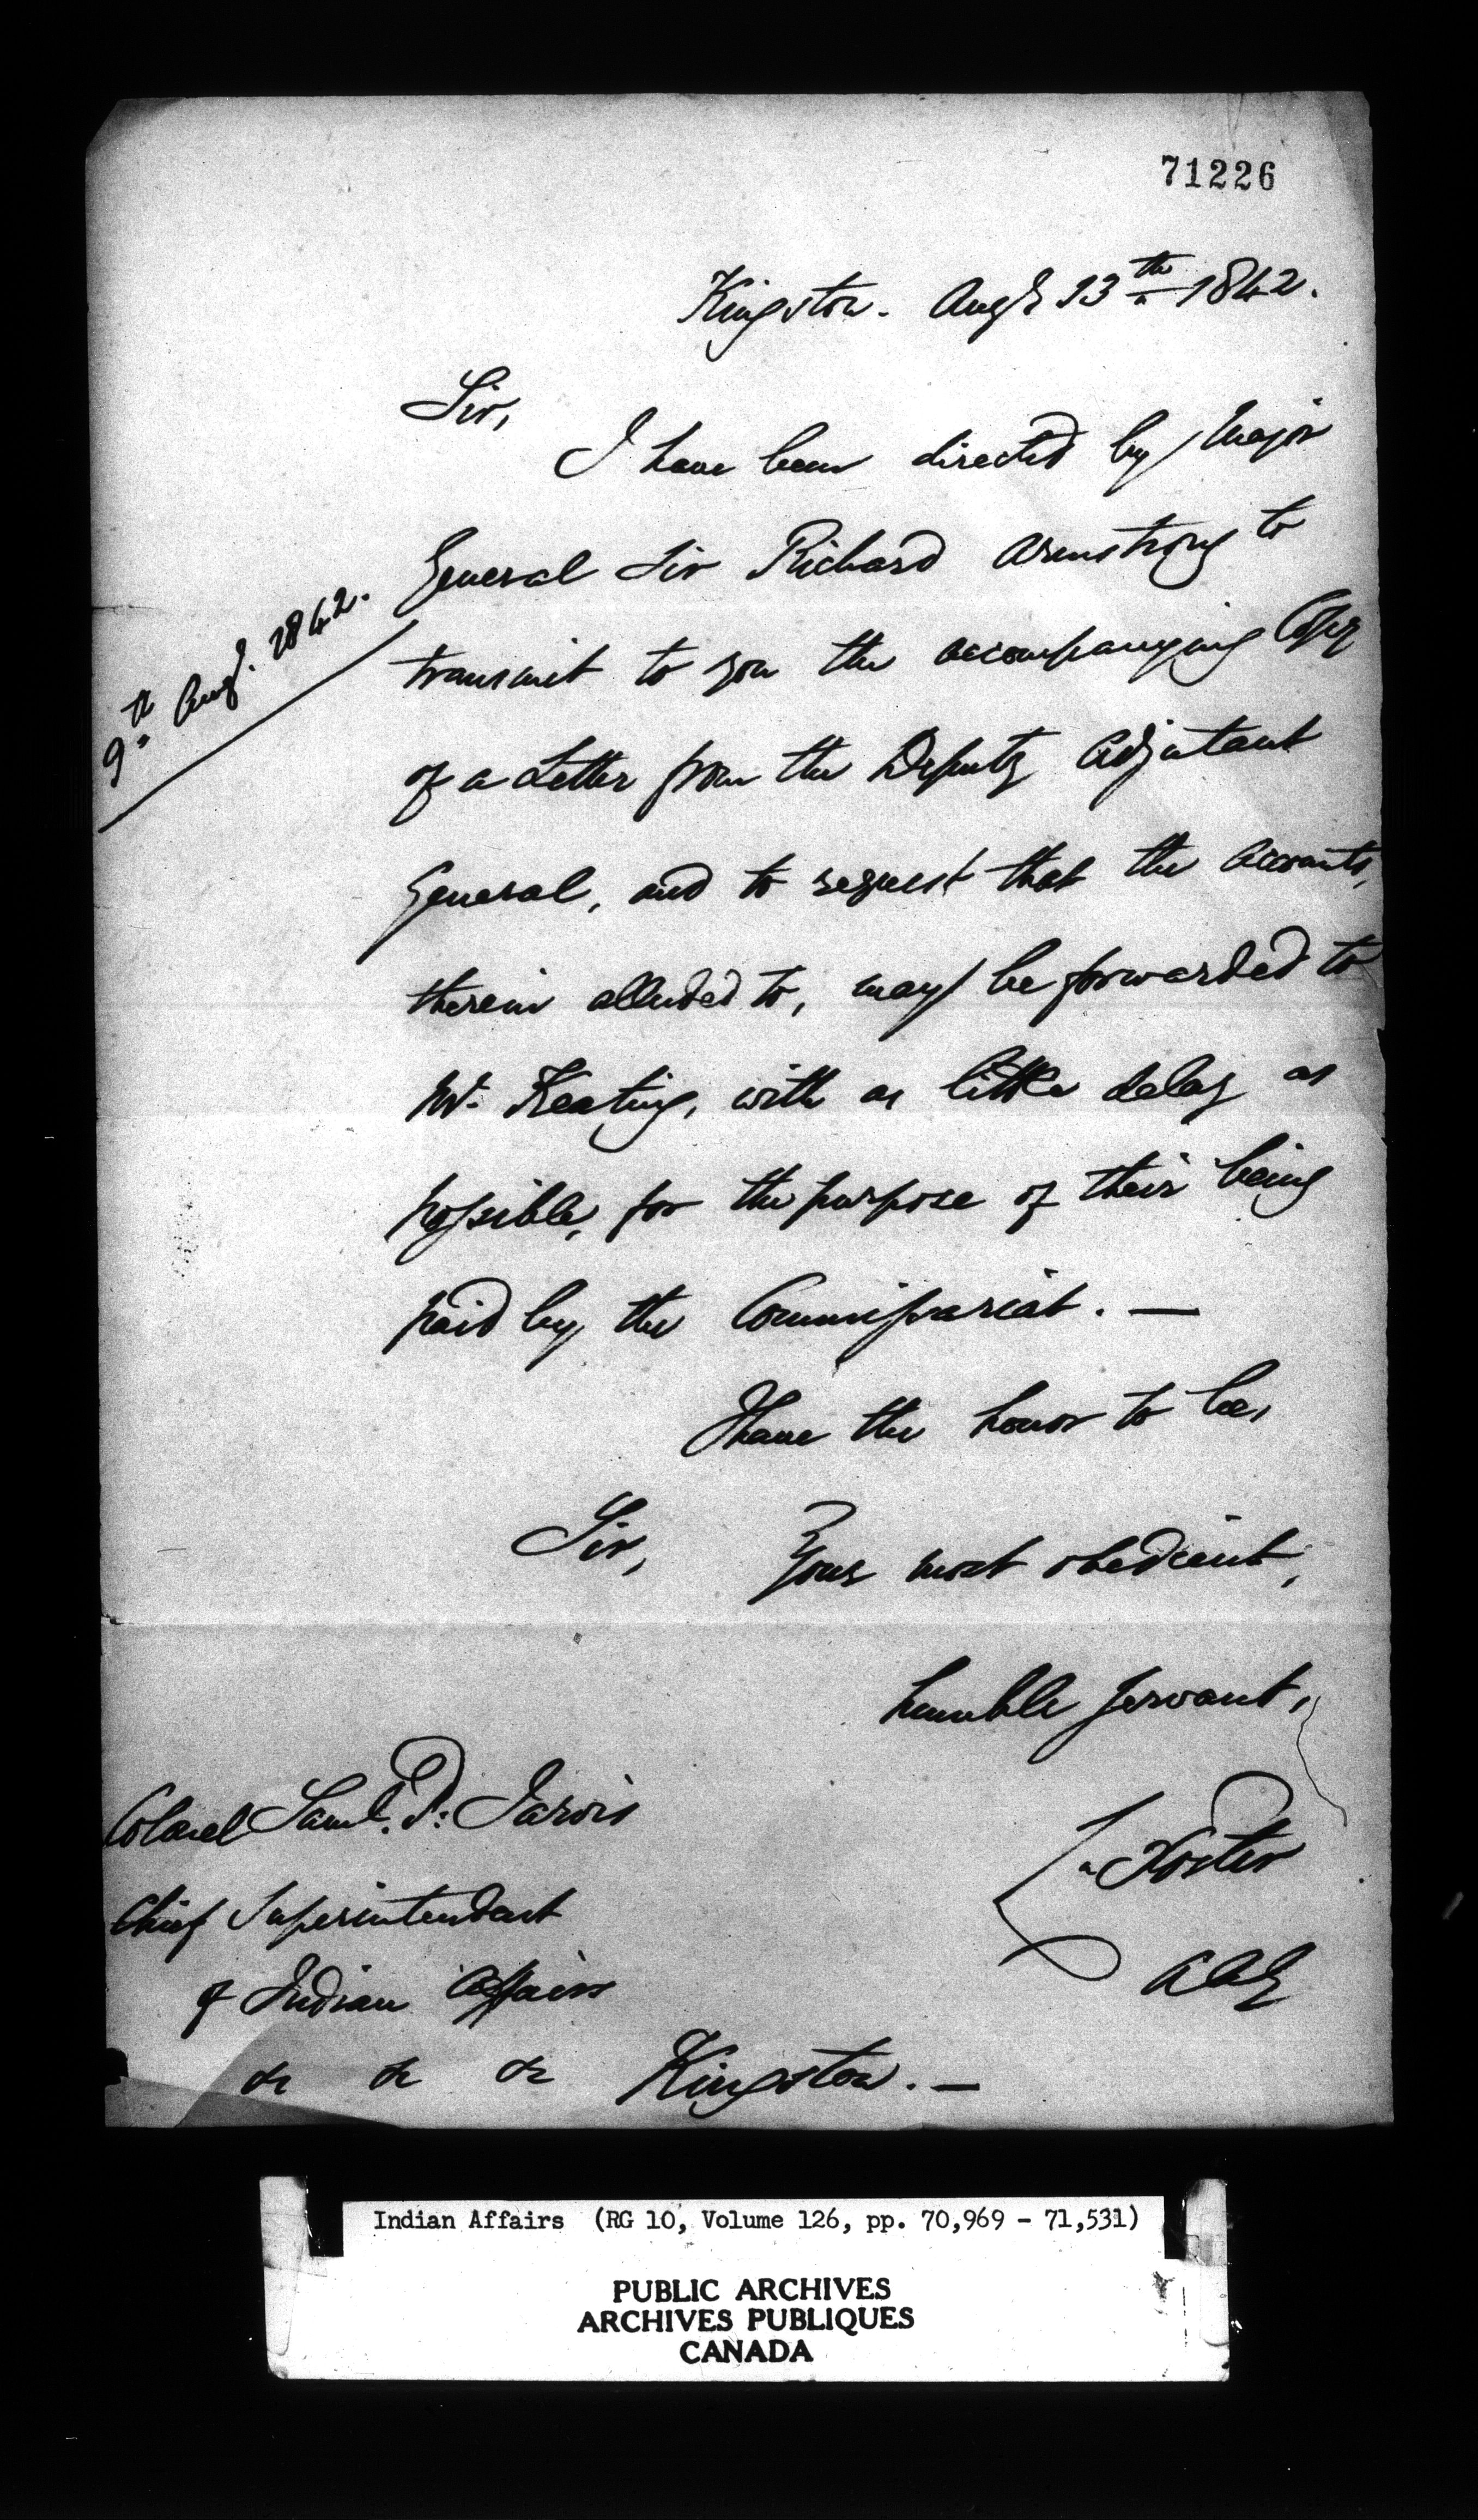 71226
Kingston. Augt 13th 1842.
Sir,
I have been directed by Major
General Sir Richard Armstrong to
9th Augt. 1842.
transmit to you the accompanying Copy
of a Letter from the Deputy Adjutant
General, and to request that the accounts,
therein alluded to, may be forwarded to
Mr. Keating, with as little delay as
possible, for the purpose of their being
paid by the Commissariat. —
I have the honor to be,
Sir, Your most obedient,
humble servant,
Colonel Saml. P: Jarvis
Foster
Chief Superintendent
of Indian Affairs
&c &c &c Kingston. —
Indian Affairs (RG 10, Volume 126, pp. 70,969 - 71,531)
PUBLIC ARCHIVES
ARCHIVES PUBLIQUES
CANADA